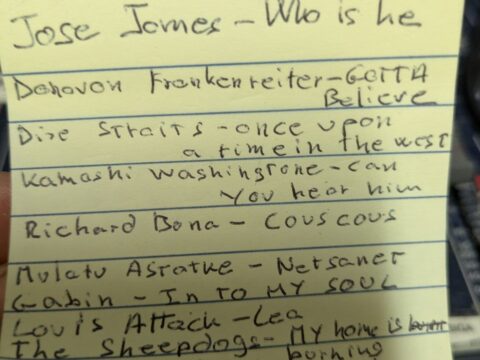 Jose James - Who is he
Donovon Frankenreiter - GOTTA
Believe
Dire Straits - once upon
a time in the west
Kamashi Washingtone - can
You hear him
Richard Bona - Couscous
Mulatu Astatke - Netsanet
Gabin - In TO MY SOUL
Louis Attack - Lea
The Sheepdogs - MY home is
burning